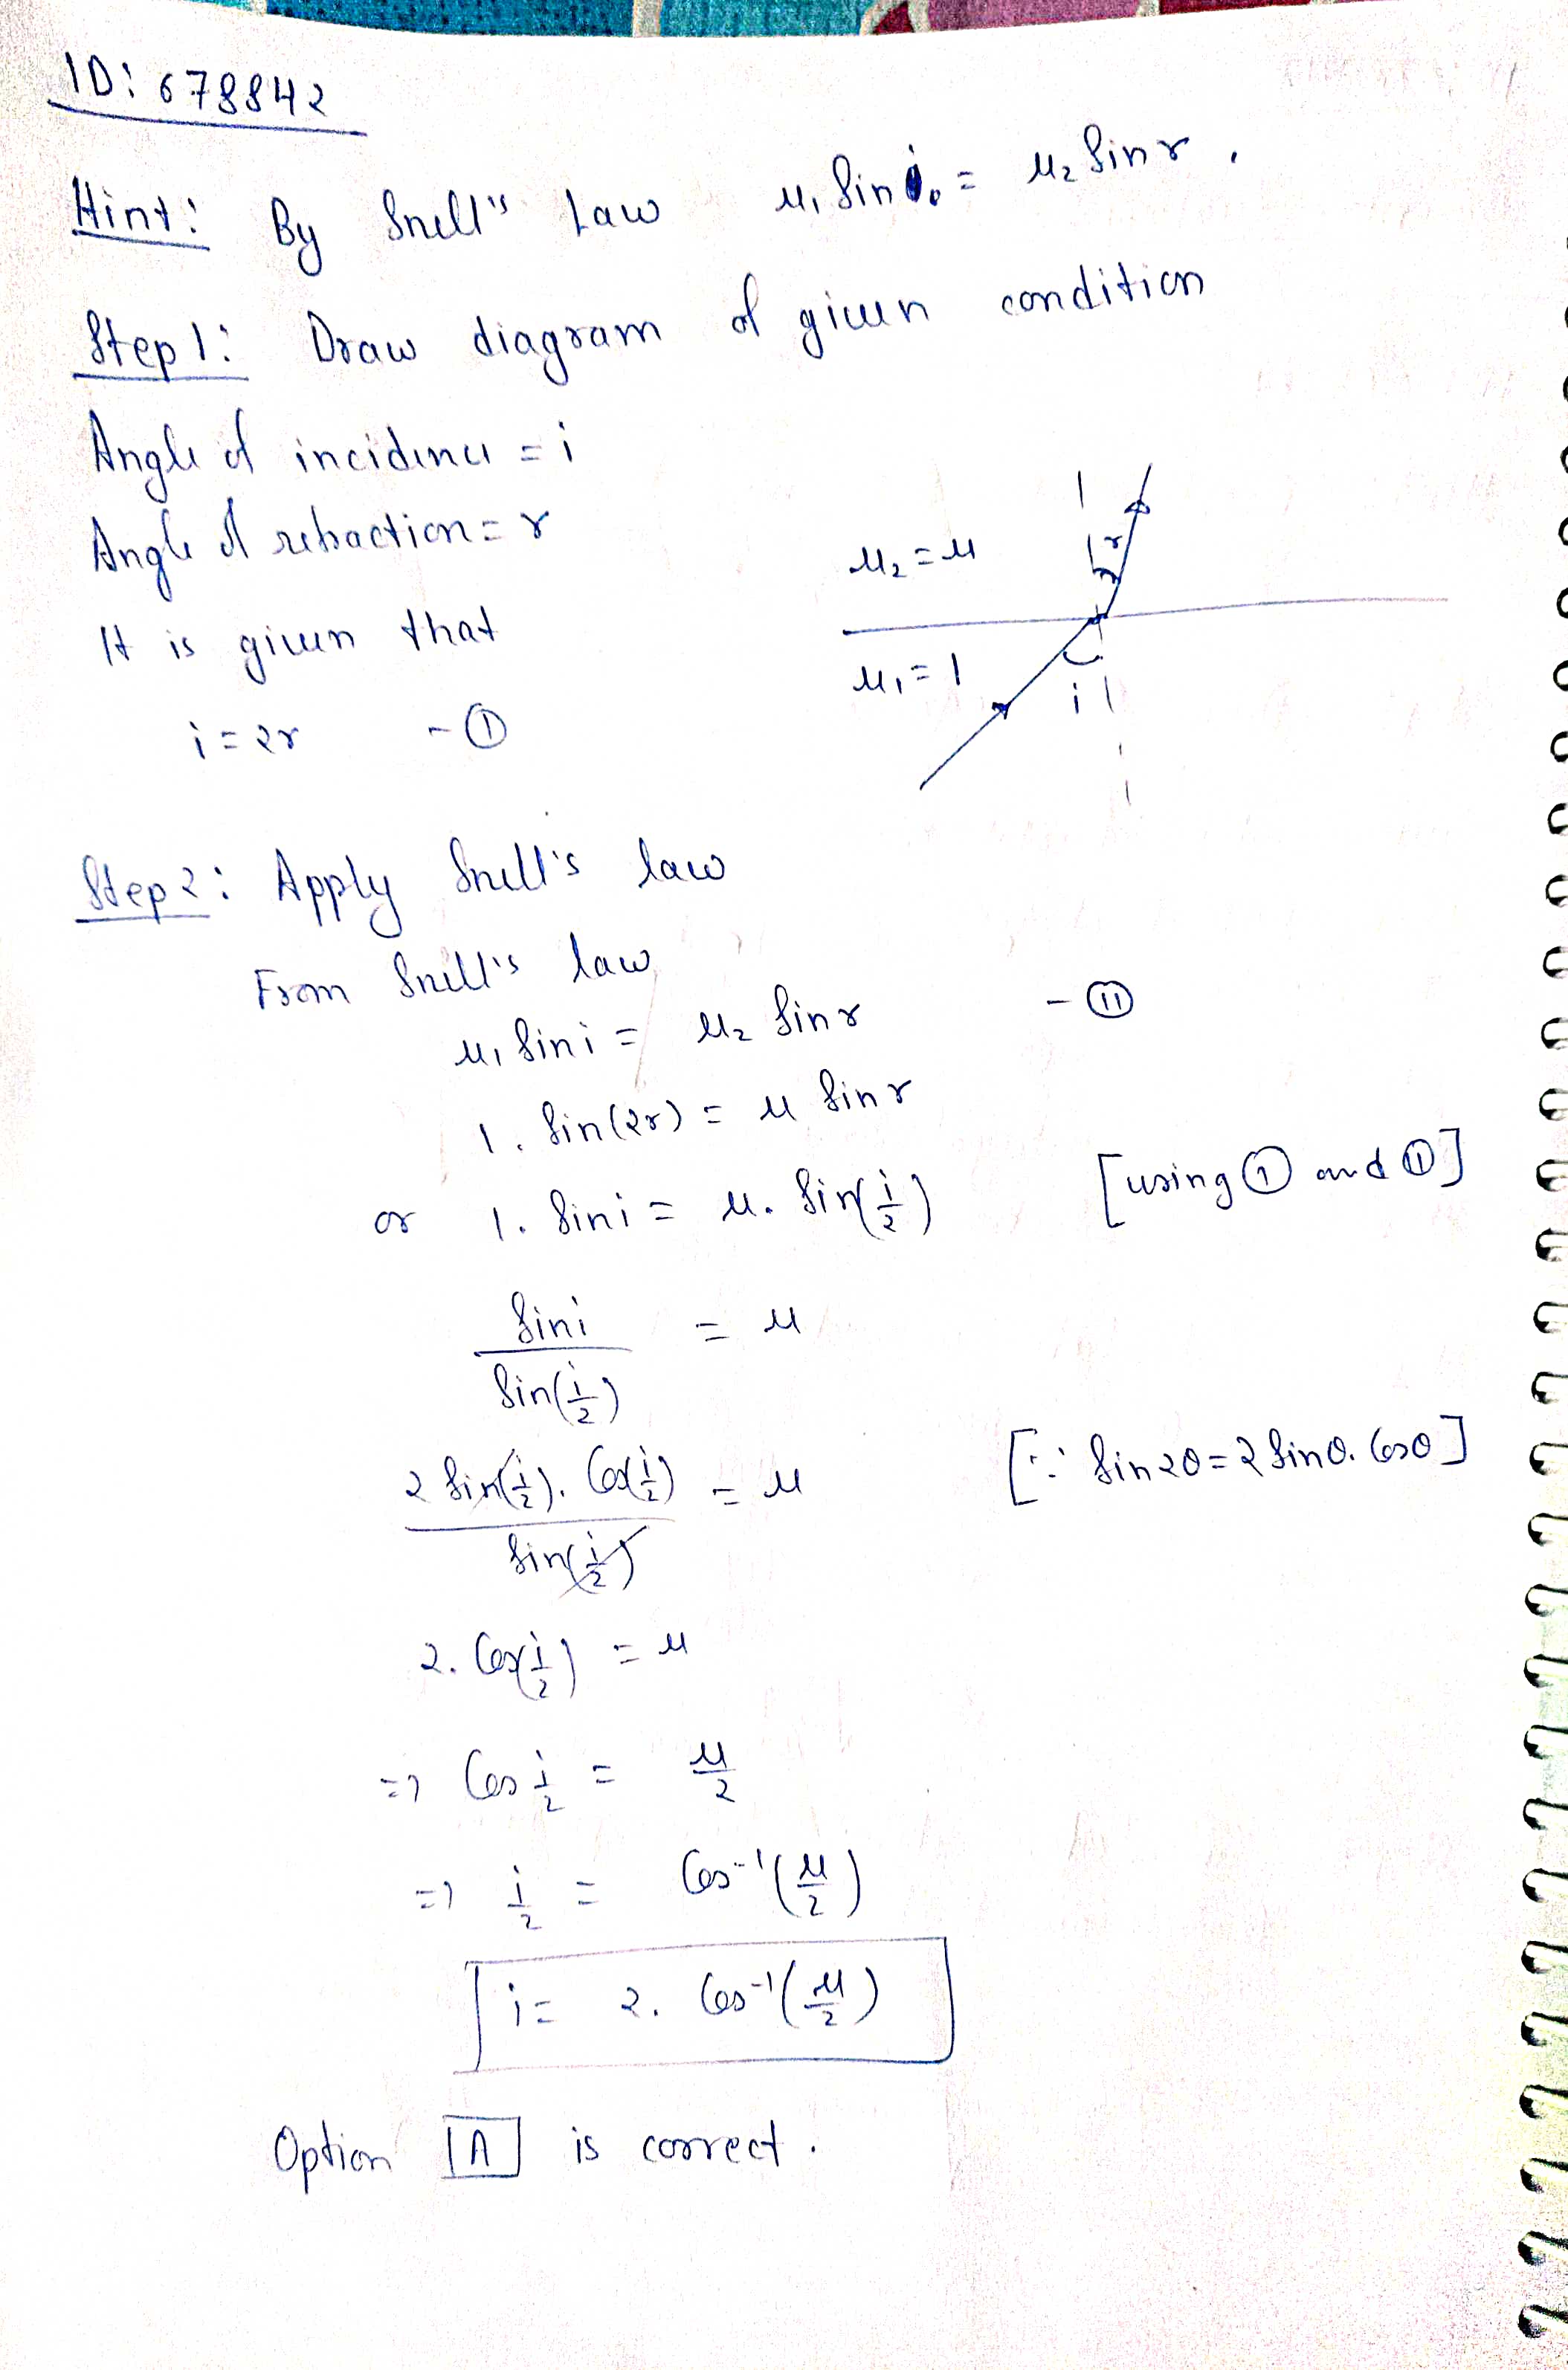 ID: 678842
Hint: By Snell's Law μ₁ Sin i = μ₂ Sin r.
Step 1: Draw diagram of given condition
Angle of incidence = i
Angle of refraction = r
It is given that
i = 2r - ①
μ₂ = μ
r
μ₁ = 1
i
Step 2: Apply Snell's law
From Snell's law
μ₁ Sin i = μ₂ Sin r - ⑪
1. Sin(2r) = μ Sin r
or 1. Sin i = μ. Sin(i/2) [using ① and ⑪]
Sin i / Sin(i/2) = μ
2 Sin(i/2). Cos(i/2) / Sin(i/2) = μ [∵ Sin 2θ = 2 Sin θ. Cos θ]
2. Cos(i/2) = μ
=> Cos i/2 = μ/2
=> i/2 = Cos⁻¹(μ/2)
i = 2. Cos⁻¹(μ/2)
Option A is correct.